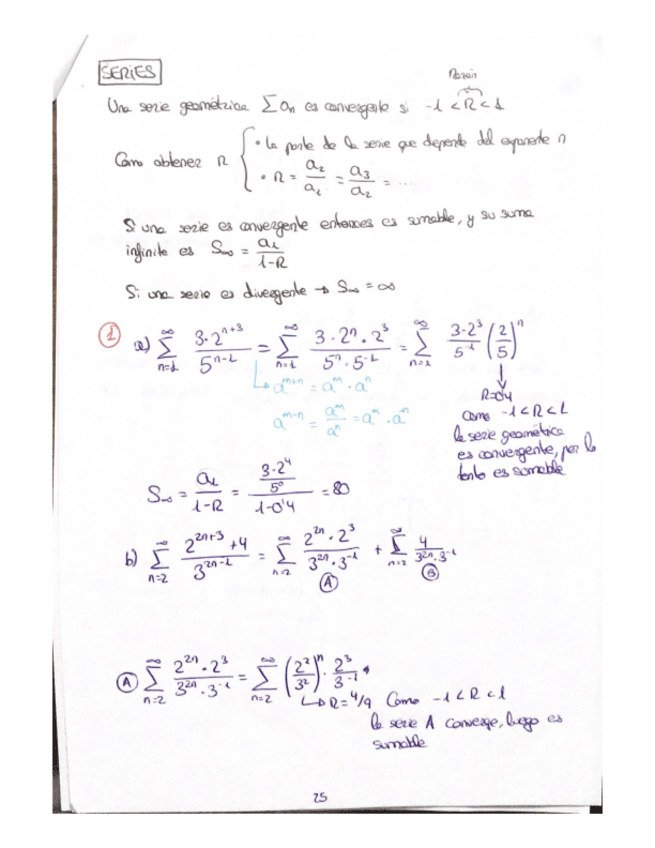 SERIES
Razón
Una serie geométrica Σ an es convergente si -1 < R < 1
Cómo obtener R
• La parte de la serie que depende del exponente n
• R = a₂/a₁ = a₃/a₂ = ...
Si una serie es convergente entonces es sumable, y su suma
infinita es S∞ = a₁/(1-R)
Si una serie es divergente → S∞ = ∞
1 a) ∞ Σ n=1 3·2ⁿ⁺³/5ⁿ⁻¹ = ∞ Σ n=1 3·2ⁿ·2³/5ⁿ·5⁻¹ = ∞ Σ n=1 3·2³/5⁻¹ (2/5)ⁿ
aᵐ⁺ⁿ = aᵐ·aⁿ
aᵐ⁻ⁿ = aᵐ/aⁿ = aᵐ·a⁻ⁿ
R=0'4
Como -1 < R < 1
la serie geométrica
es convergente, por lo
tanto es sumable
S∞ = a₁/(1-R) = (3·2⁴/5⁰)/(1-0'4) = 80
b) ∞ Σ n=2 (2²ⁿ⁺³ + 4)/3²ⁿ⁻¹ = ∞ Σ n=2 2²ⁿ·2³/3²ⁿ·3⁻¹ + ∞ Σ n=2 4/3²ⁿ·3⁻¹
A B
A ∞ Σ n=2 2²ⁿ·2³/3²ⁿ·3⁻¹ = ∞ Σ n=2 (2²/3²)ⁿ · 2³/3⁻¹
R = 4/9 Como -1 < R < 1
la serie A converge, luego es
sumable
25